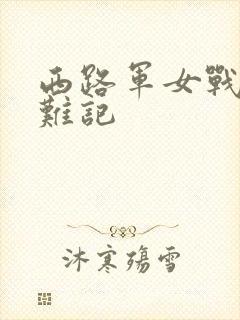 西路軍女戰
難記
沐寒殤雪